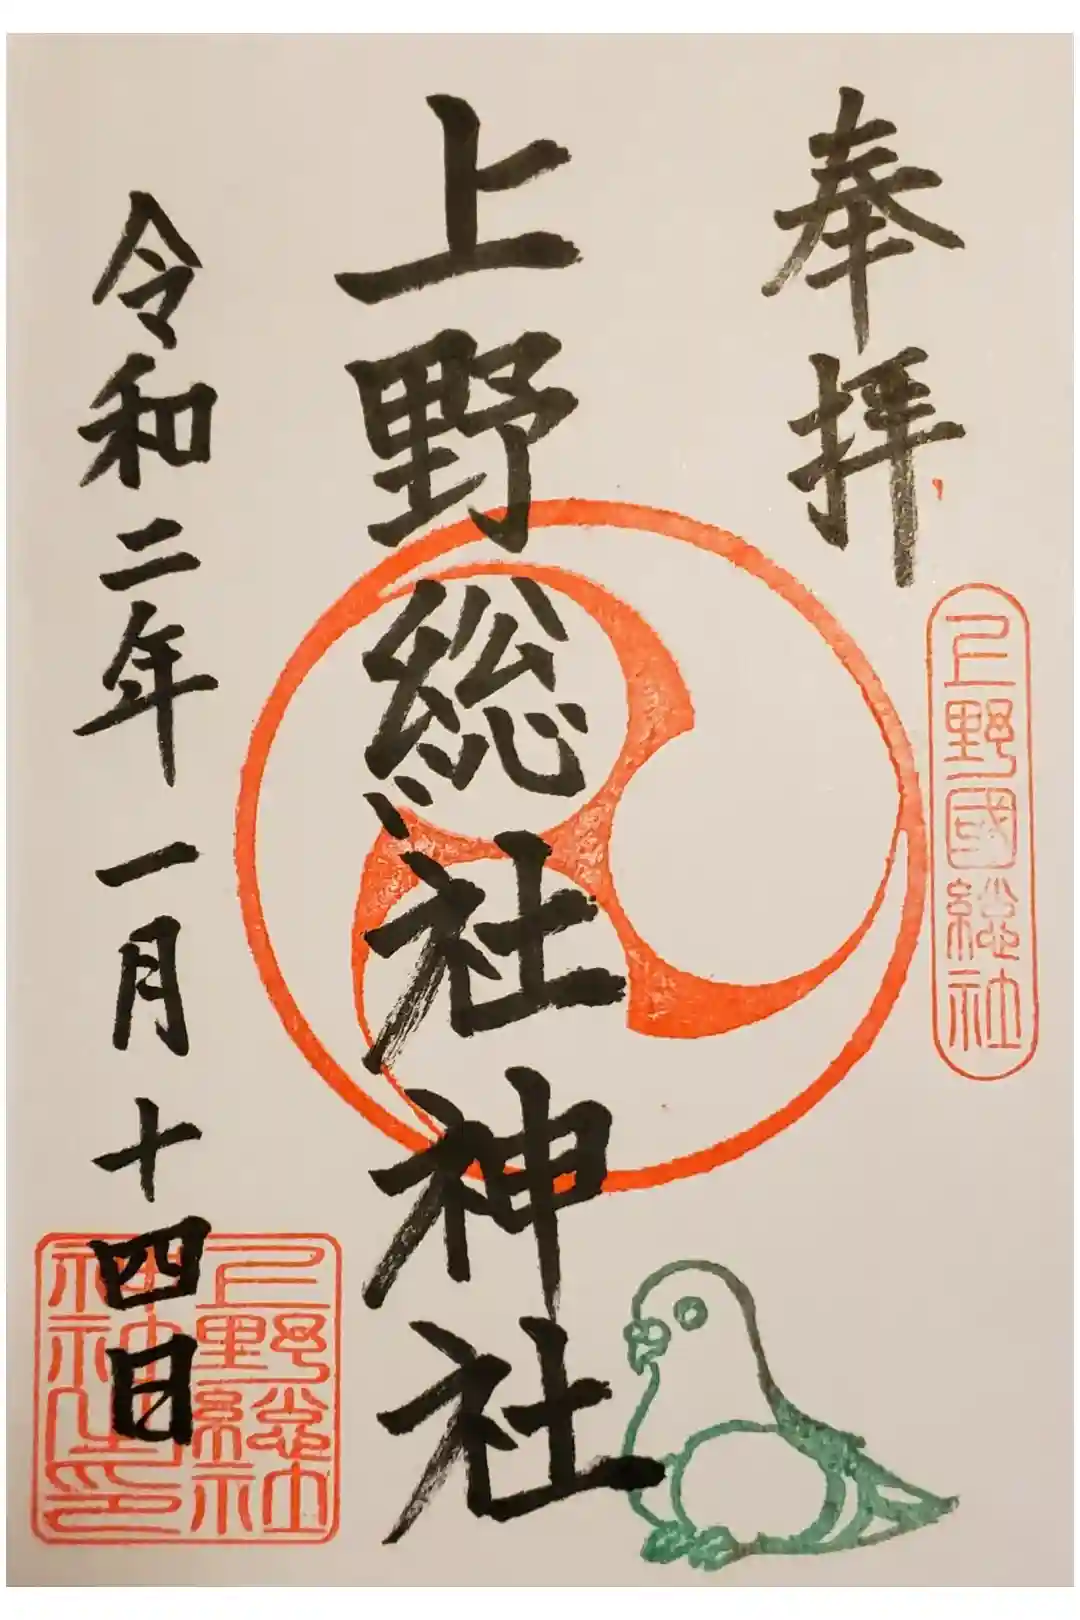 奉拝
上野國総社
上野総社神社
令和二年一月十四日
上野総社
神社之印